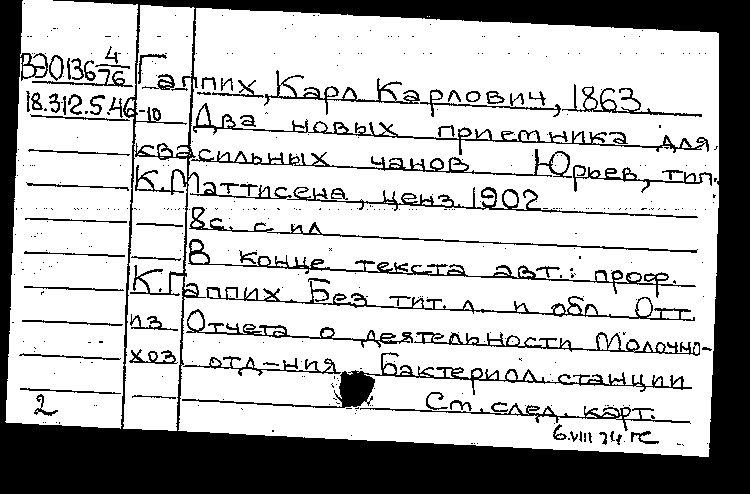 ВЭ0136 4/76 Гаппих, Карл Карлович, 1863.
18.312.5.46-10 Два новых приемника для
квасильных чанов Юрьев, тип.
К. Маттисена, ценз. 1902
8с. с ил
В конце текста авт.: проф.
К. Гаппих. Без тит. л. и обл. Отт.
из Отчета о деятельности Молочно-
хоз отд-ния Бактериол. станции
2 См. след. карт.
6.VIII 74